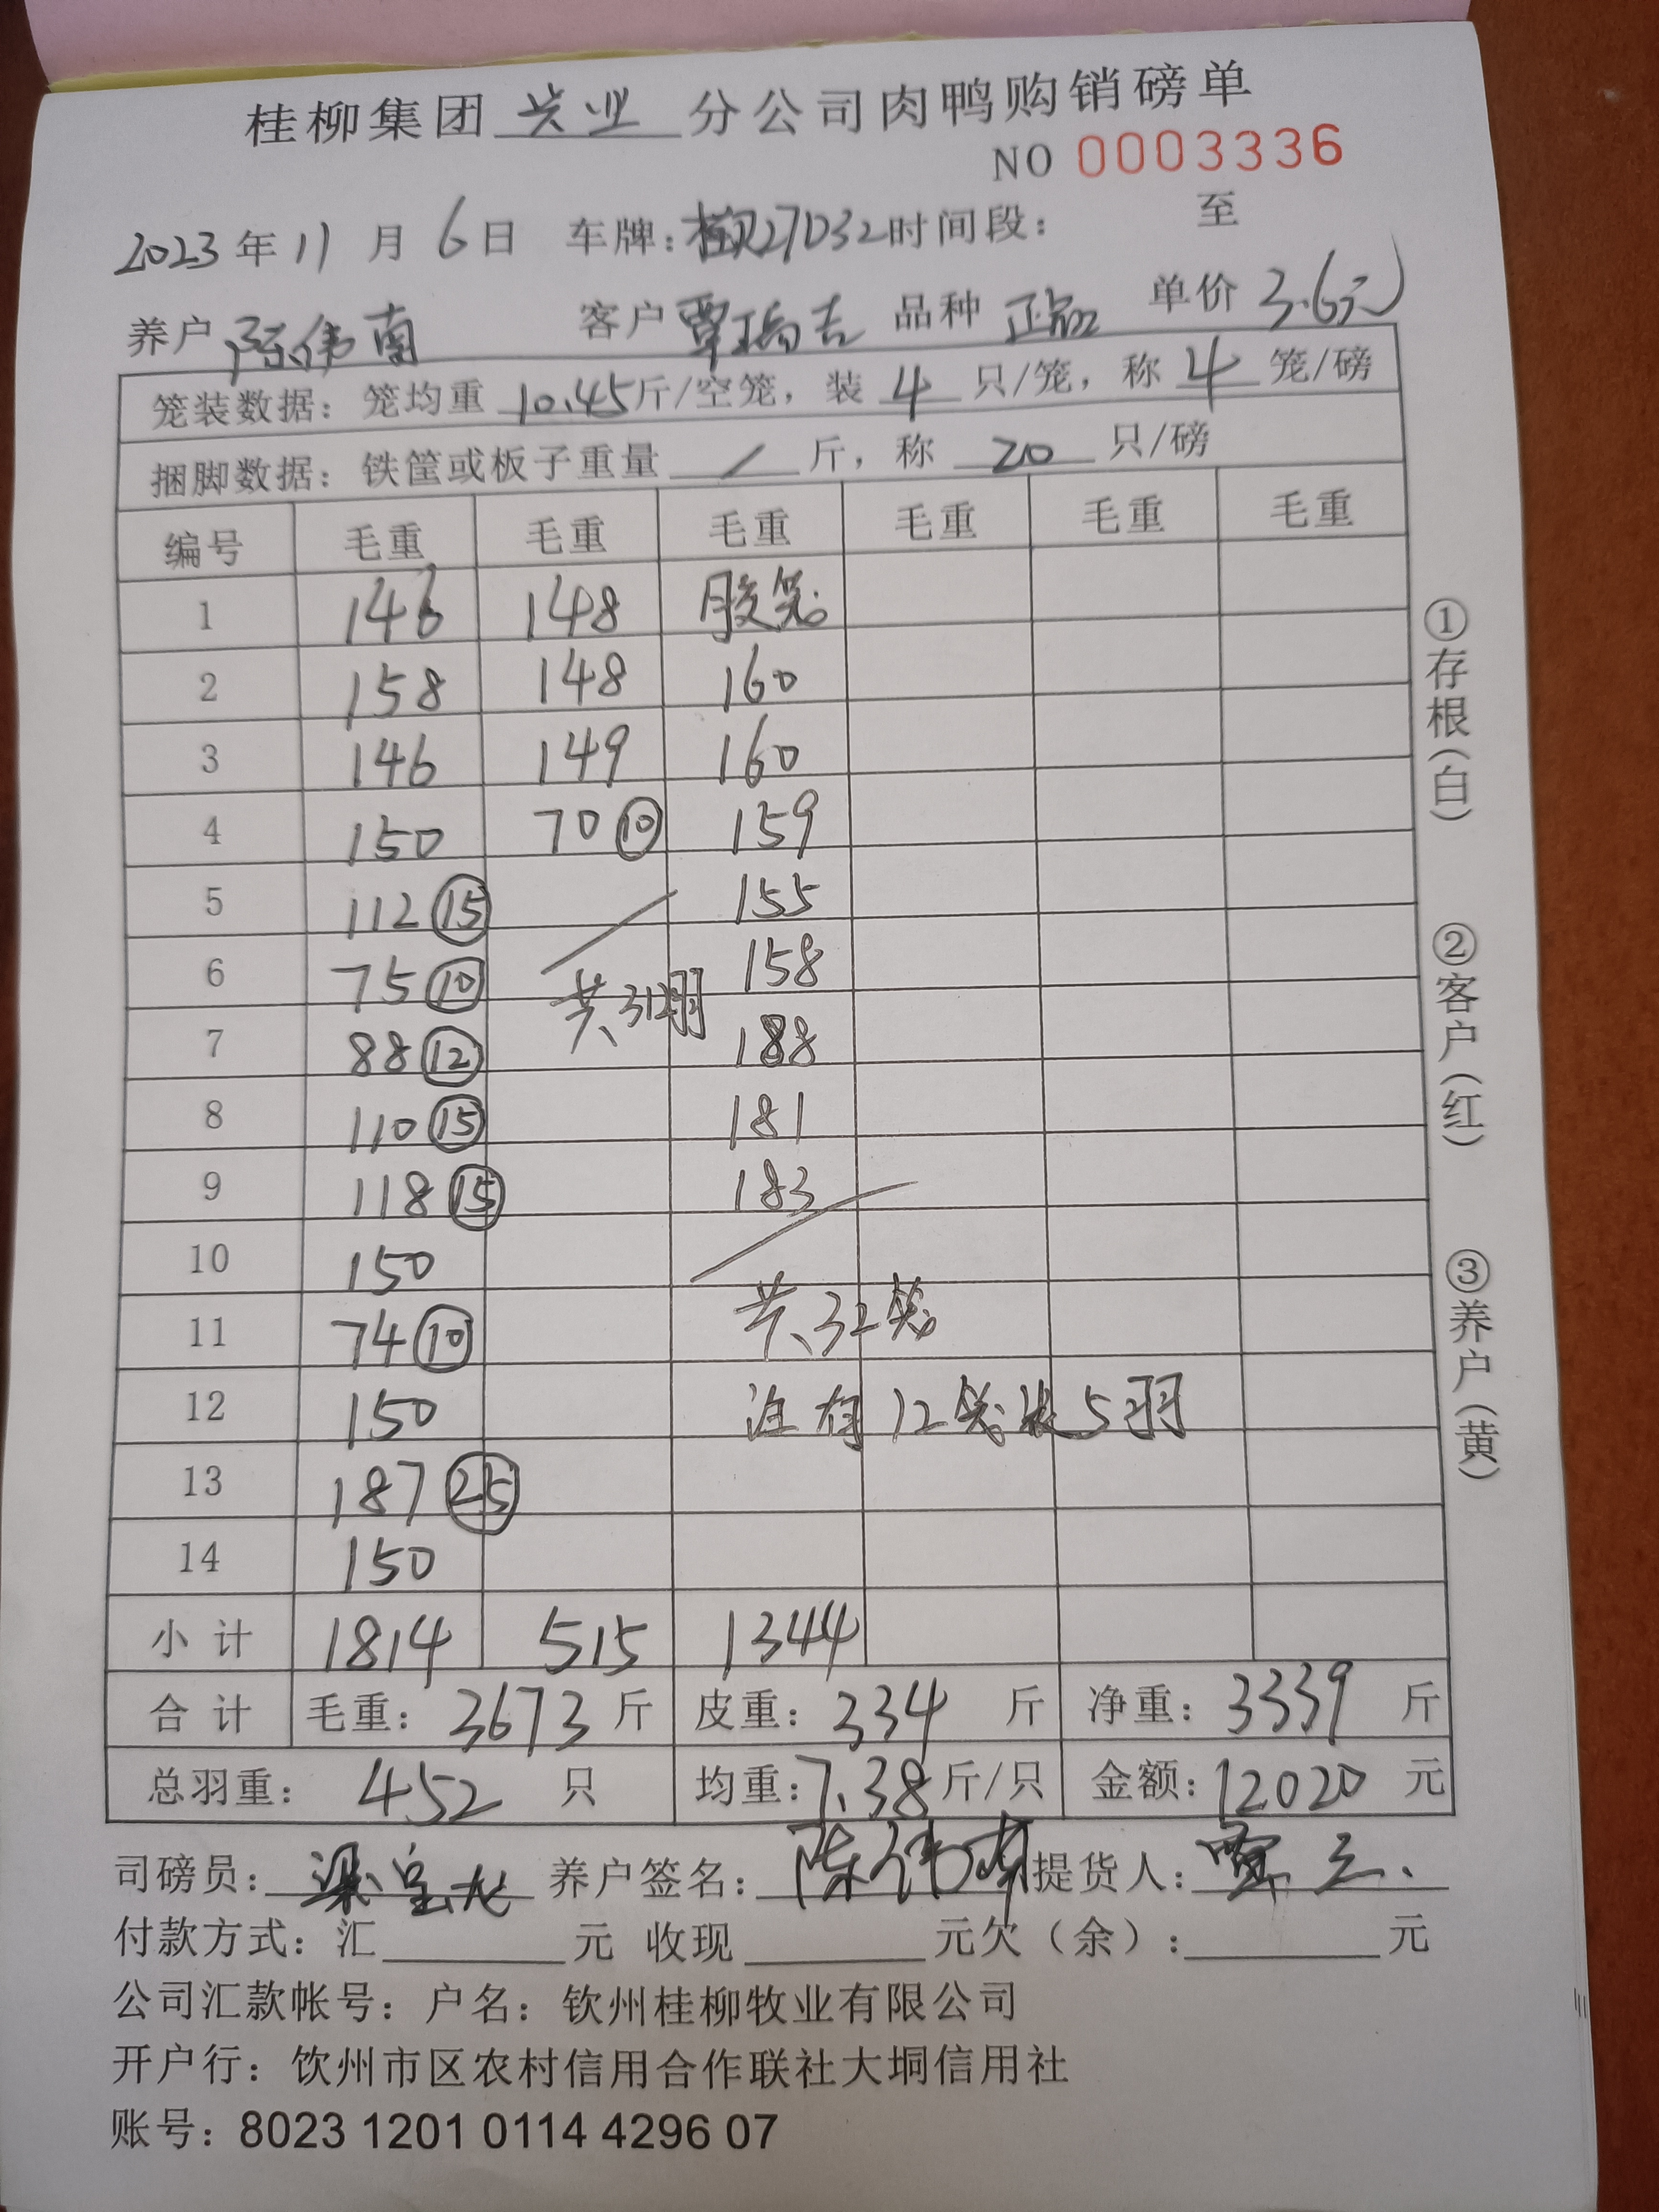 桂柳集团 兴业 分公司肉鸭购销磅单
NO 0003336
2023 年 11 月 6 日 车牌: 27D32 时间段: 至
养户 陈伟南 客户 覃瑞吉 品种 正品 单价 3.6元
笼装数据: 笼均重 10.45 斤/空笼, 装 4 只/笼, 称 4 笼/磅
捆脚数据: 铁筐或板子重量 / 斤, 称 20 只/磅
编号 毛重 毛重 毛重 毛重 毛重 毛重
1 146 148 胶笼
2 158 148 160
3 146 149 160
4 150 70 ⑩ 159
5 112 ⑮ 155
6 75 ⑩ 158
共312羽
7 88 ⑫ 188
8 110 ⑮ 181
9 118 ⑮ 183
10 150
11 74 ⑩ 共32笼
12 150 注有12笼装5羽
13 187 ㉕
14 150
小 计 1814 515 1344
合 计 毛重: 3673 斤 皮重: 334 斤 净重: 3339 斤
总羽重: 452 只 均重: 7.38 斤/只 金额: 12020 元
司磅员: 梁 养户签名: 陈伟南 提货人:
付款方式: 汇 元 收现 元欠(余): 元
公司汇款帐号: 户名: 钦州桂柳牧业有限公司
开户行: 饮州市区农村信用合作联社大垌信用社
账号: 8023 1201 0114 4296 07
①存根(白)
②客户(红)
③养户(黄)